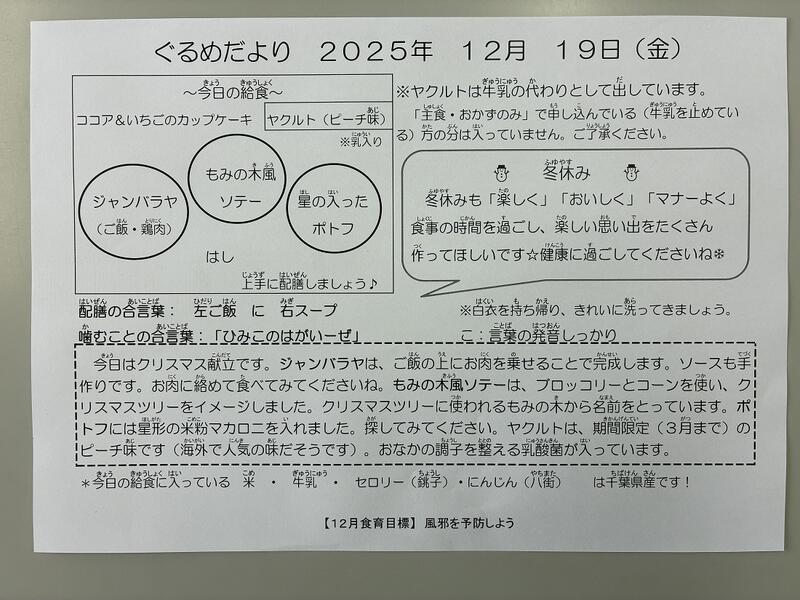 ぐるめだより　２０２５年　１２月　１９日（金）
～今日の給食～
ココア＆いちごのカップケーキ
ヤクルト（ピーチ味）
※乳入り
もみの木風
ソテー
ジャンバラヤ
（ご飯・鶏肉）
星の入った
ポトフ
はし
上手に配膳しましょう♪
※ヤクルトは牛乳の代わりとして出しています。
「主食・おかずのみ」で申し込んでいる（牛乳を止めてい
る）方の分は入っていません。ご了承ください。
冬休み
冬休みも「楽しく」「おいしく」「マナーよく」
食事の時間を過ごし、楽しい思い出をたくさん
作ってほしいです☆健康に過ごしてくださいね❄
※白衣を持ち帰り、きれいに洗ってきましょう。
配膳の合言葉：　左ご飯　に　右スープ
噛むことの合言葉：「ひみこのはがいーぜ」　　　　　こ：言葉の発音しっかり
今日はクリスマス献立です。ジャンバラヤは、ご飯の上にお肉を乗せることで完成します。ソースも手
作りです。お肉に絡めて食べてみてくださいね。もみの木風ソテーは、ブロッコリーとコーンを使い、ク
リスマスツリーをイメージしました。クリスマスツリーに使われるもみの木から名前をとっています。ポ
トフには星形の米粉マカロニを入れました。探してみてください。ヤクルトは、期間限定（３月まで）の
ピーチ味です（海外で人気の味だそうです）。おなかの調子を整える乳酸菌が入っています。
＊今日の給食に入っている　米　・　牛乳　・　セロリー（銚子）・にんじん（八街）　　は千葉県産です！
【１２月食育目標】　風邪を予防しよう